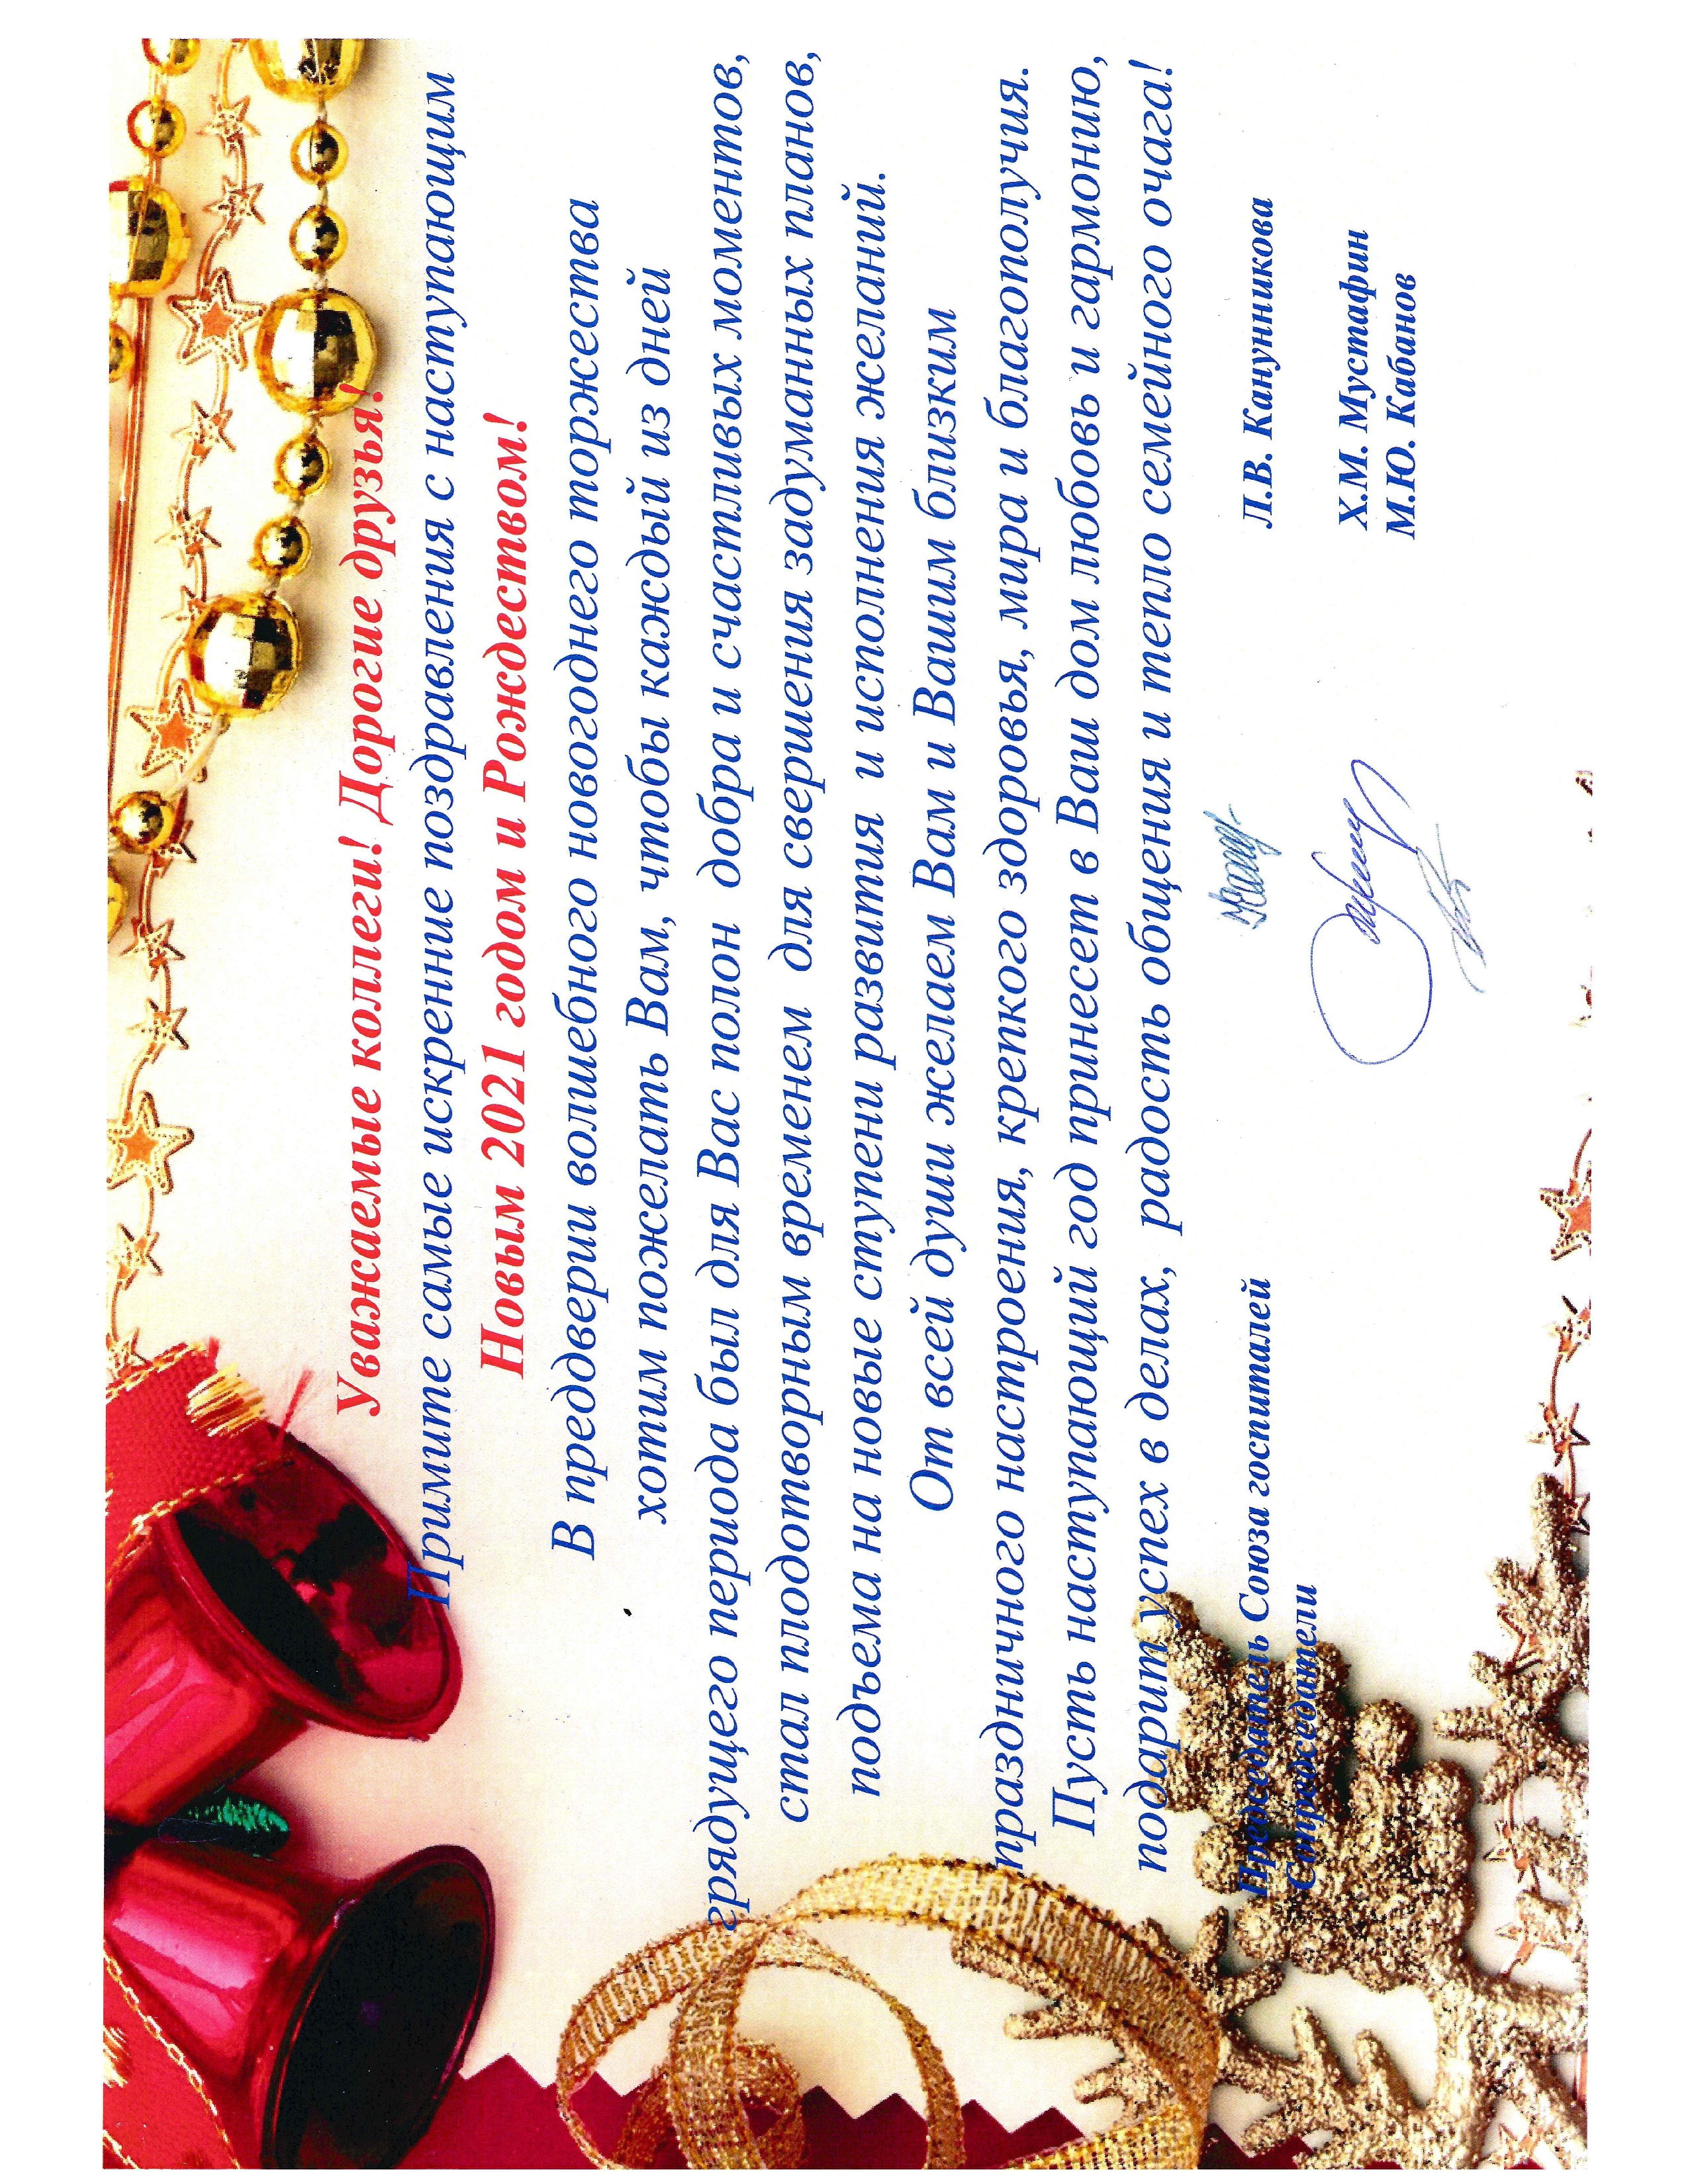 Уважаемые коллеги! Дорогие друзья!
Примите самые искренние поздравления с наступающим
Новым 2021 годом и Рождеством!
В преддверии волшебного новогоднего торжества
хотим пожелать Вам, чтобы каждый из дней
грядущего периода был для Вас полон добра и счастливых моментов,
стал плодотворным временем для свершения задуманных планов,
подъема на новые ступени развития и исполнения желаний.
От всей души желаем Вам и Вашим близким
праздничного настроения, крепкого здоровья, мира и благополучия.
Пусть наступающий год принесет в Ваш дом любовь и гармонию,
подарит успех в делах, радость общения и тепло семейного очага!
Председатель Союза госпиталей Л.В. Канунникова
Сопредседатели
Х.М. Мустафин
М.Ю. Кабанов